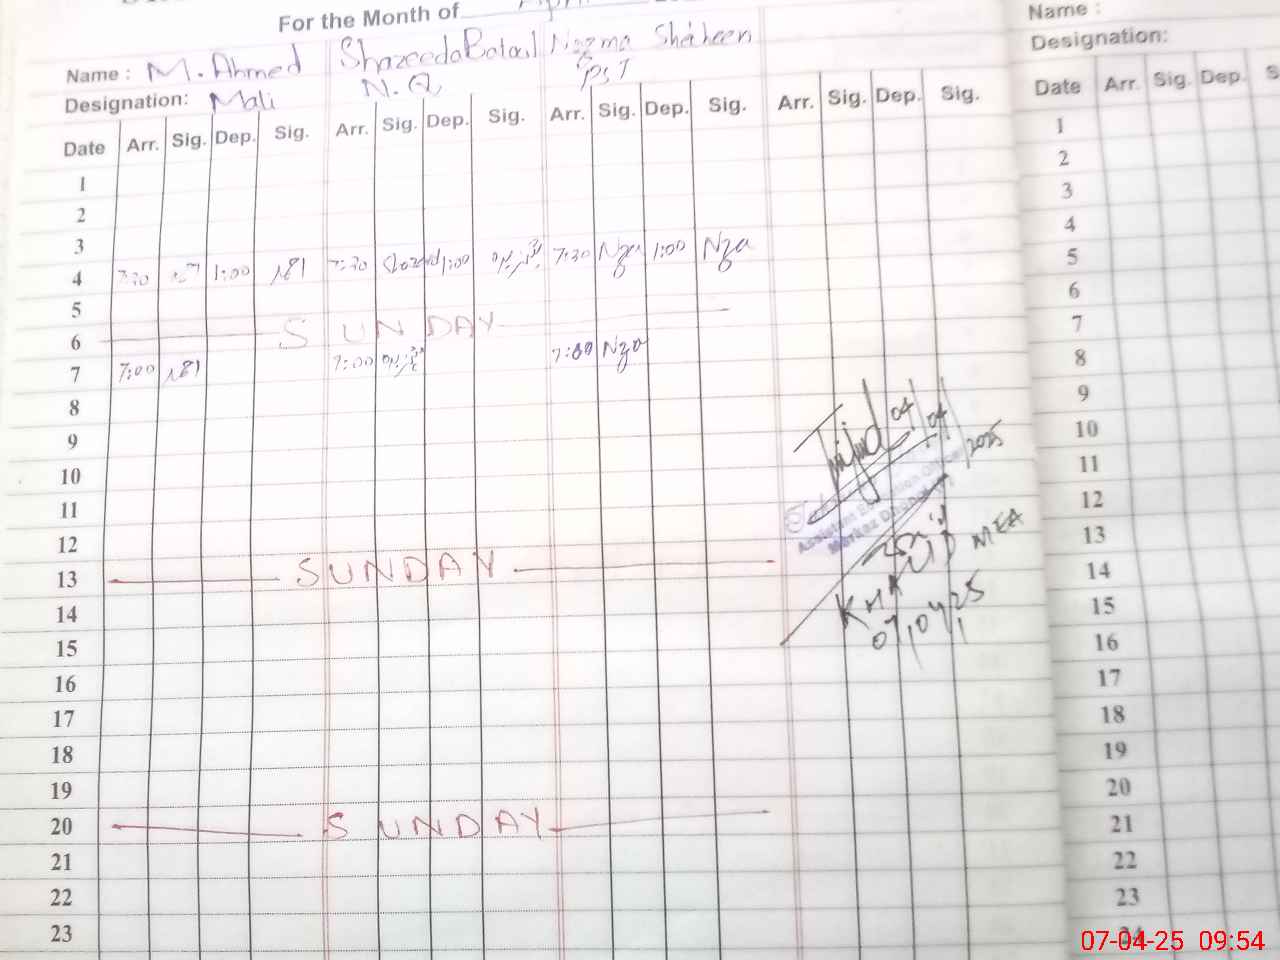 For the Month of April
Name : M. Ahmed Shazeeda Batool Nazma Shaheen
Designation: Mali N.Q PST
Date Arr. Sig. Dep. Sig. Arr. Sig. Dep. Sig. Arr. Sig. Dep. Sig. Arr. Sig. Dep. Sig.
1
2
3
4 7:30 1:00 7:30 1:00 7:30 Nza 1:00 Nza
5
6 SUNDAY
7 7:00 7:00 7:00 Nza
8
9
10
11
12
13 SUNDAY
14
15
16
17
18
19
20 SUNDAY
21
22
23
04/04/2025
Assistant Education Officer
Markaz
KHALID MEA
07/04/25
Name :
Designation:
Date Arr. Sig. Dep. S
1
2
3
4
5
6
7
8
9
10
11
12
13
14
15
16
17
18
19
20
21
22
23
24
07-04-25 09:54